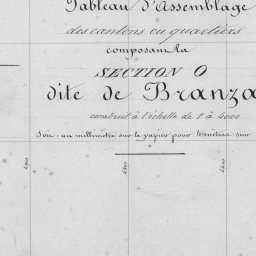 Tableau d'Assemblage
des cantons ou quartiers
composant la
SECTION O
dite de Branza
construit à l'échelle de 1 à 4000
Soit : un millimètre sur le papier pour 4 mètres sur